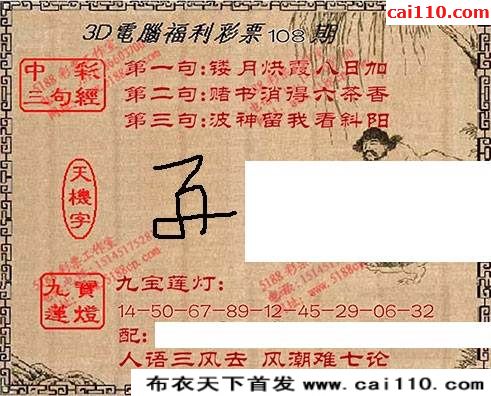 cai110.com
3D電腦福利彩票108期
中彩
三句經
第一句:镂月烘霞八日加
第二句:赌书消得六茶香
第三句:波神留我看斜阳
天機字
九寶
蓮燈
九宝莲灯:
14-50-67-89-12-45-29-06-32
配:
人语三风去 风潮难七论
布衣天下首发 www.cai110.com